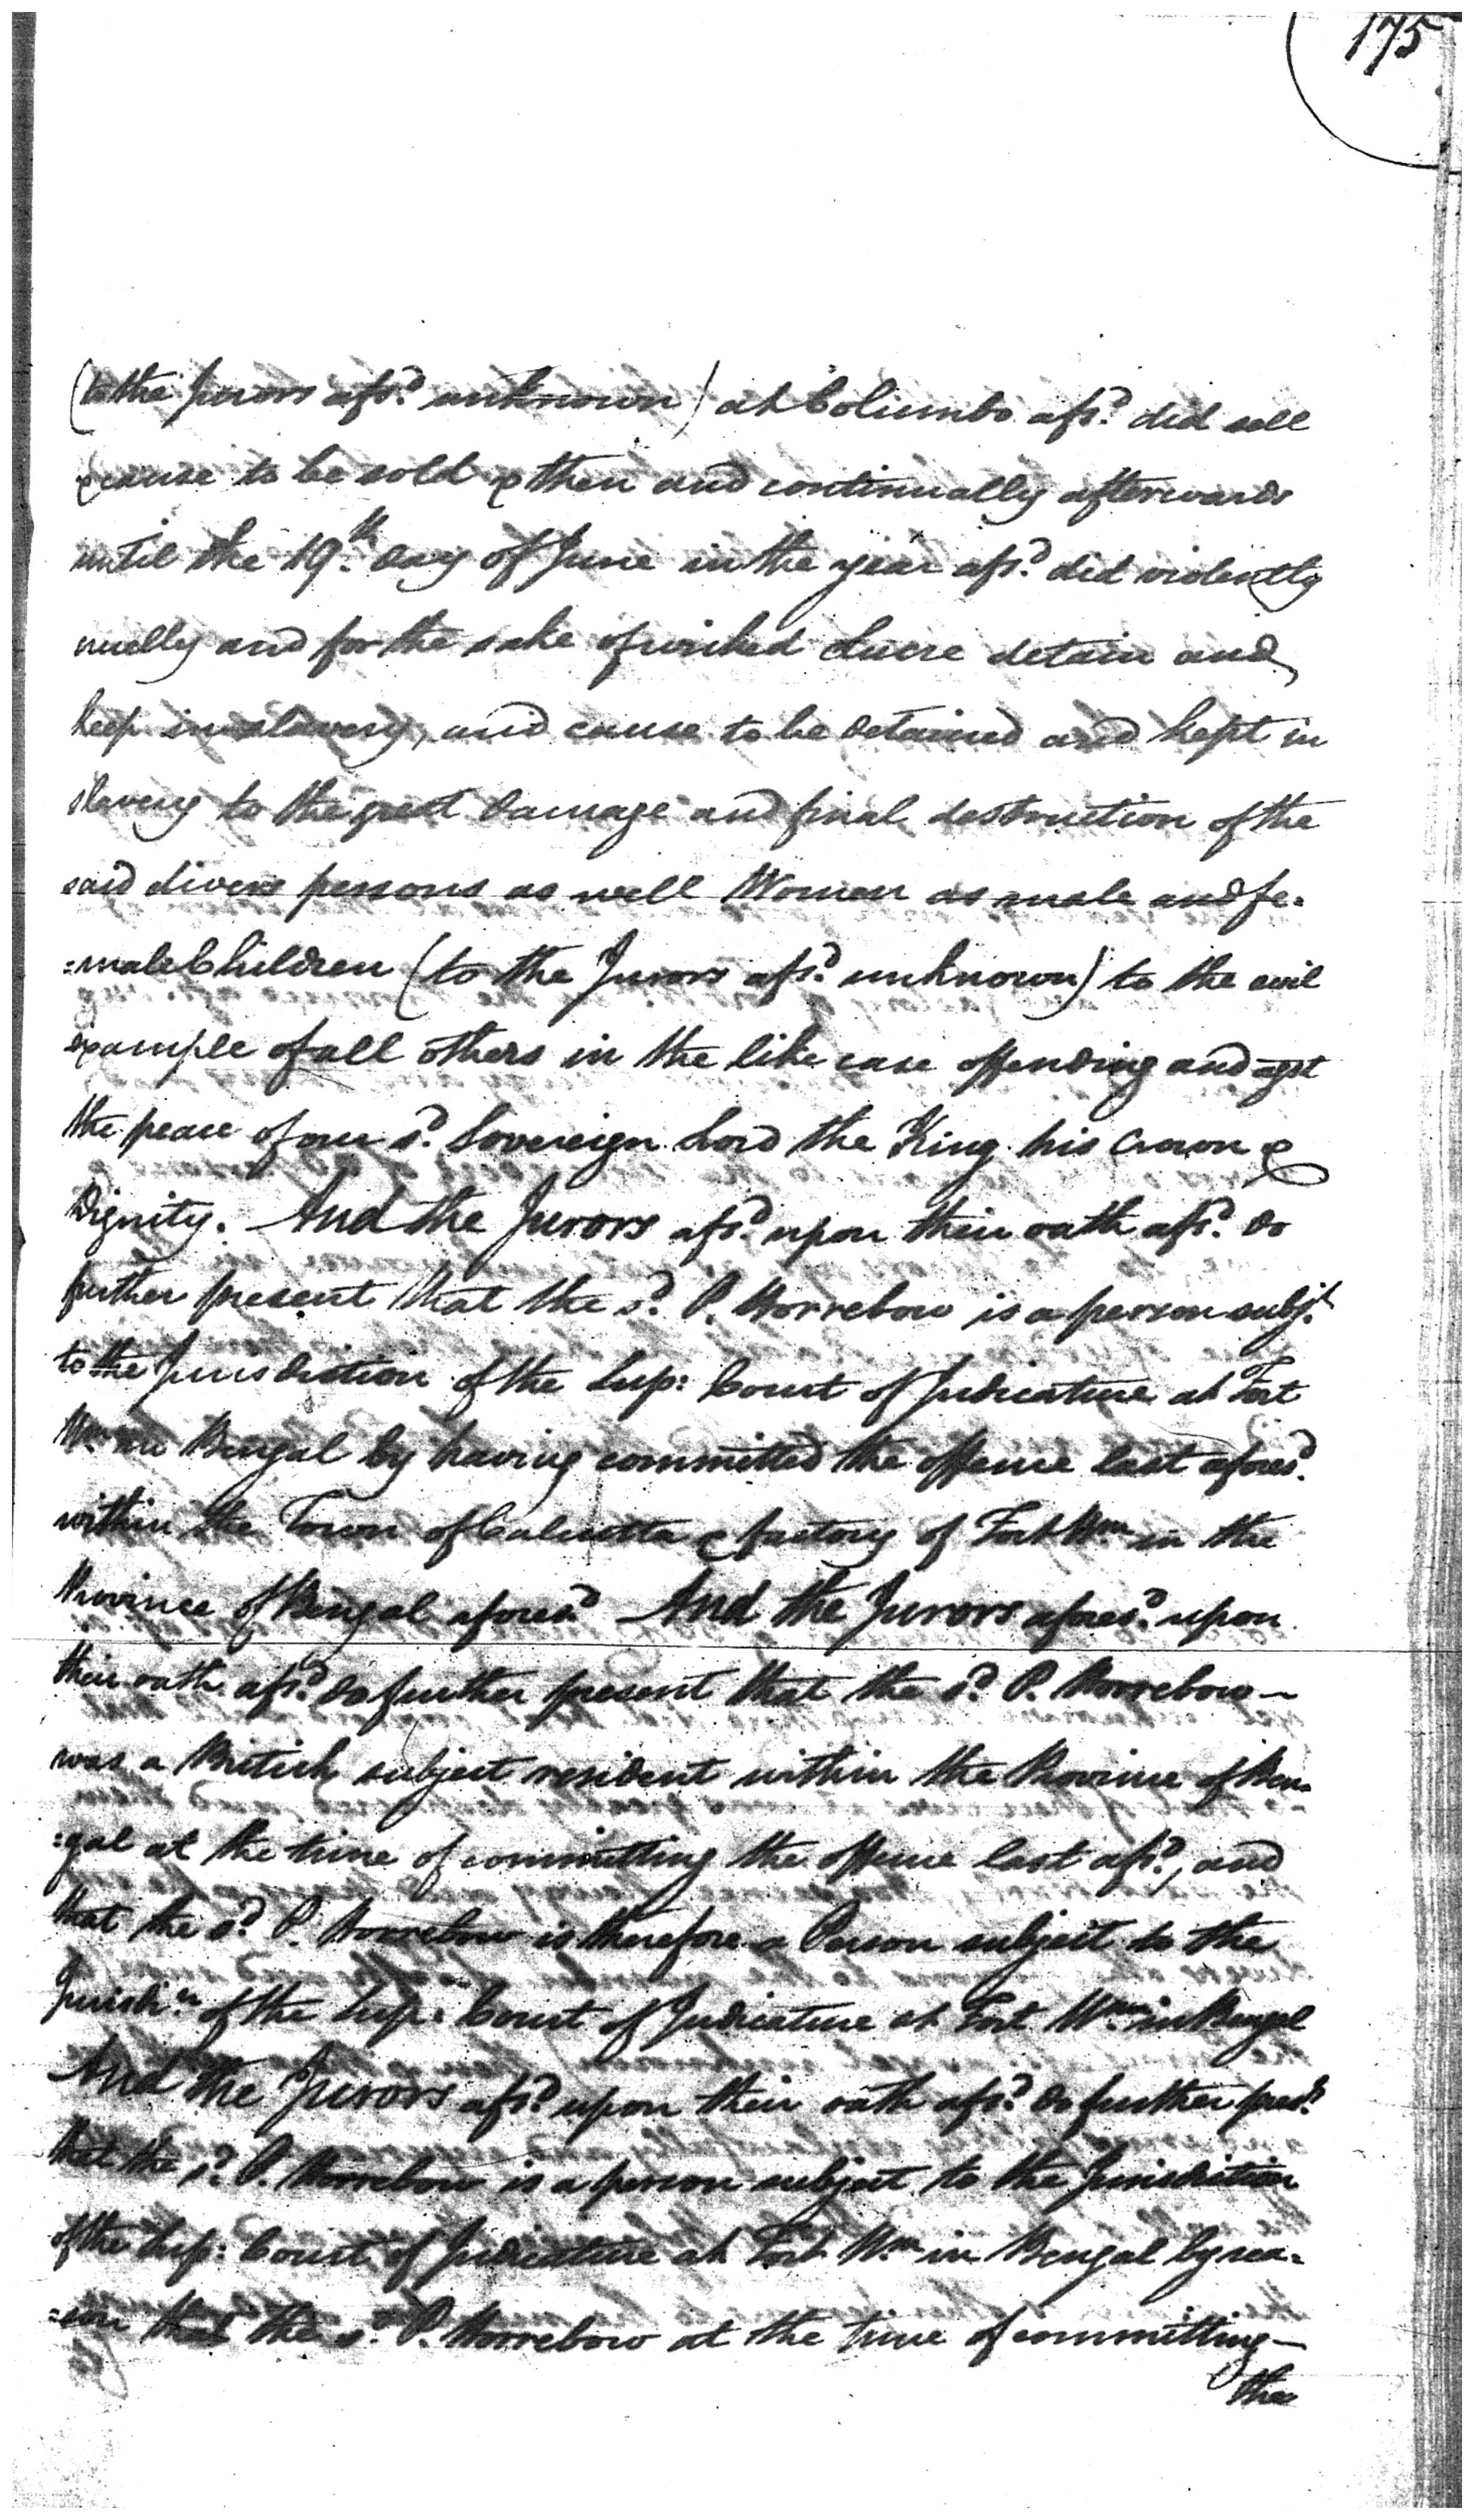 175
(to the Jurors afsd. unknown) at Columbo afsd. did sell
& cause to be sold & then and continually afterwards
until the 19th. day of June in the year afsd. did violently
cruelly and for the sake of wicked Lucre detain and
keep in slavery, and cause to be detained and kept in
slavery to the great damage and final destruction of the
said divers persons as well Women as male and fe-
=male Children (to the Jurors afsd. unknown) to the evil
example of all others in the like case offending and agst
the peace of our sd. Sovereign Lord the King his Crown &
Dignity. And the Jurors afsd. upon their oath afsd. do
further present that the sd. P. Horrebow is a person subjt.
to the Jurisdiction of the Sup: Court of Judicature at Fort
Wm. in Bengal by having committed the offence last aforesd.
within the Town of Calcutta & factory of Fort Wm. in the
Province of Bengal aforesd. And the Jurors aforesd. upon
their oath afsd. do further present that the sd. P. Horrebow -
was a British subject resident within the Province of Ben-
=gal at the time of committing the offence last afsd., and
that the sd. P. Horrebow is therefore a Person subject to the
Jurisdn. of the Sup: Court of Judicature at Fort Wm. in Bengal
And the Jurors afsd. upon their oath afsd. do further prest.
that the sd. P. Horrebow is a person subject to the Jurisdiction
of the Sup: Court of Judicature at Fort Wm. in Bengal by rea-
=son that the sd. P. Horrebow at the time of committing -
the